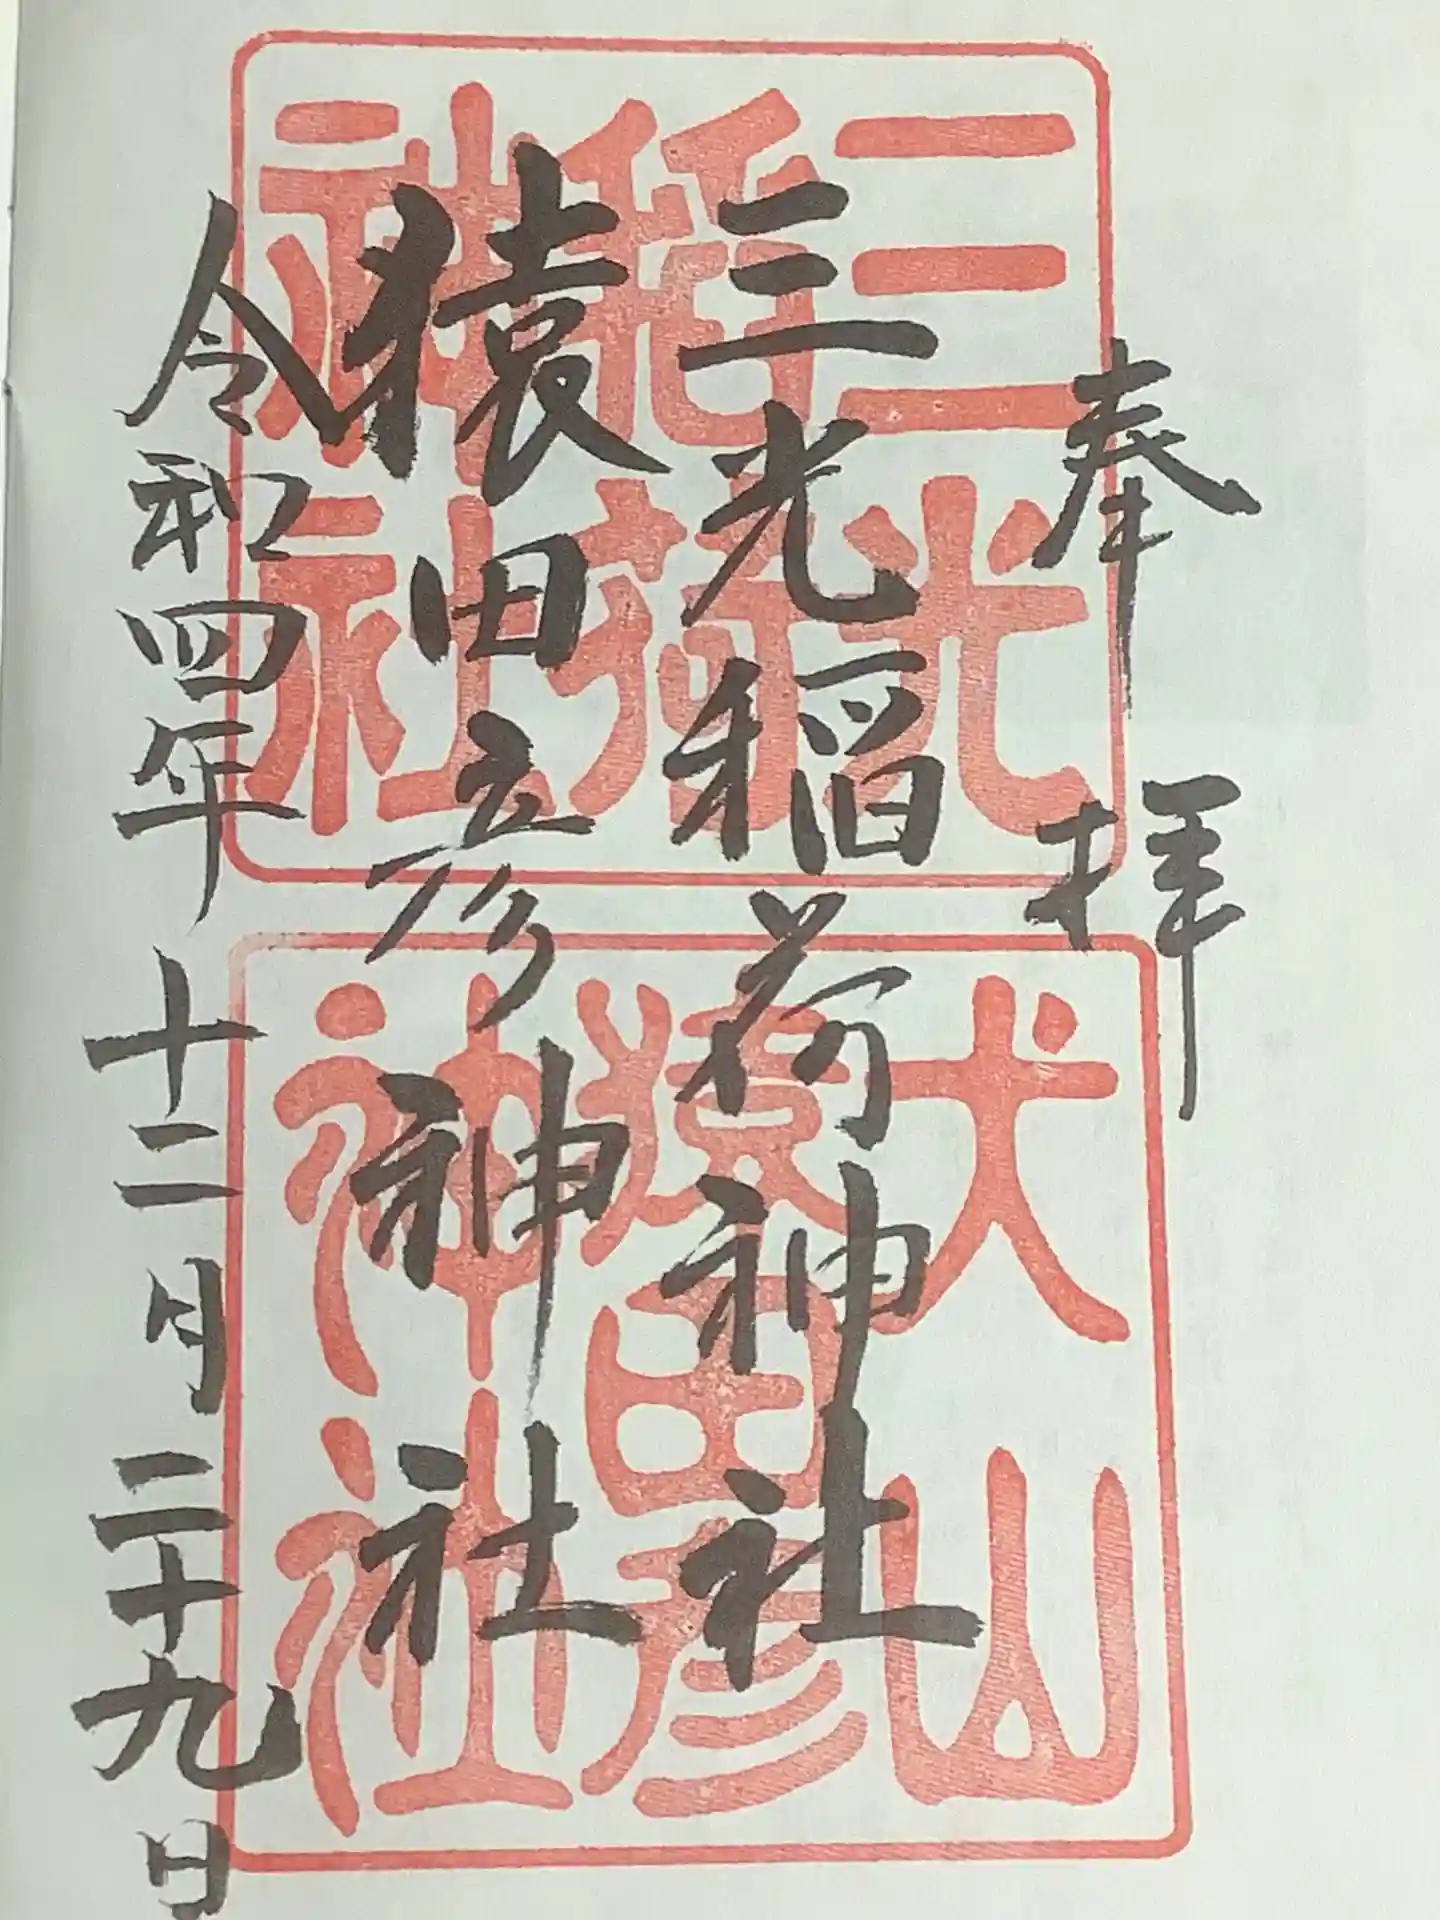 奉拝
三光稲荷神社
猿田彦神社
令和四年十二月二十九日
三光
稲荷
神社
犬山
猿田彦
神社